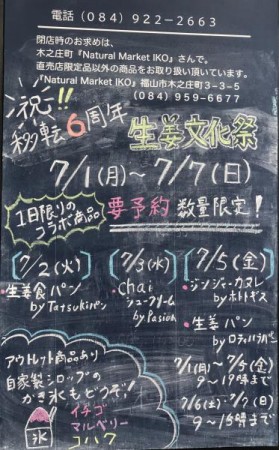 電話 (084) 922-2663
閉店時のお求めは、
木之庄町『Natural Market IKO』さんで。
直売店限定品以外の商品をお取り扱い頂いています。
『Natural Market IKO』福山市木之庄町3-3-5
(084) 959-6677
祝!! 移転6周年
生姜文化祭
7/1(月)〜7/7(日)
1日限りのコラボ商品
要予約 数量限定!
[7/2(火)]
・生姜食パン
by Tatsukiパン
[7/3(水)]
・Chai
シュークリーム
by Pasion
[7/5(金)]
・ジンジャーカヌレ
by ホトトギス
・生姜パン
by
アウトレット商品あり!
自家製シロップの
かき氷もどうぞ!
イチゴ
マルベリー
コハク
氷
7/1(月)〜7/5(金)
9〜19時まで
7/6(土)・7/7(日)
9〜15時まで